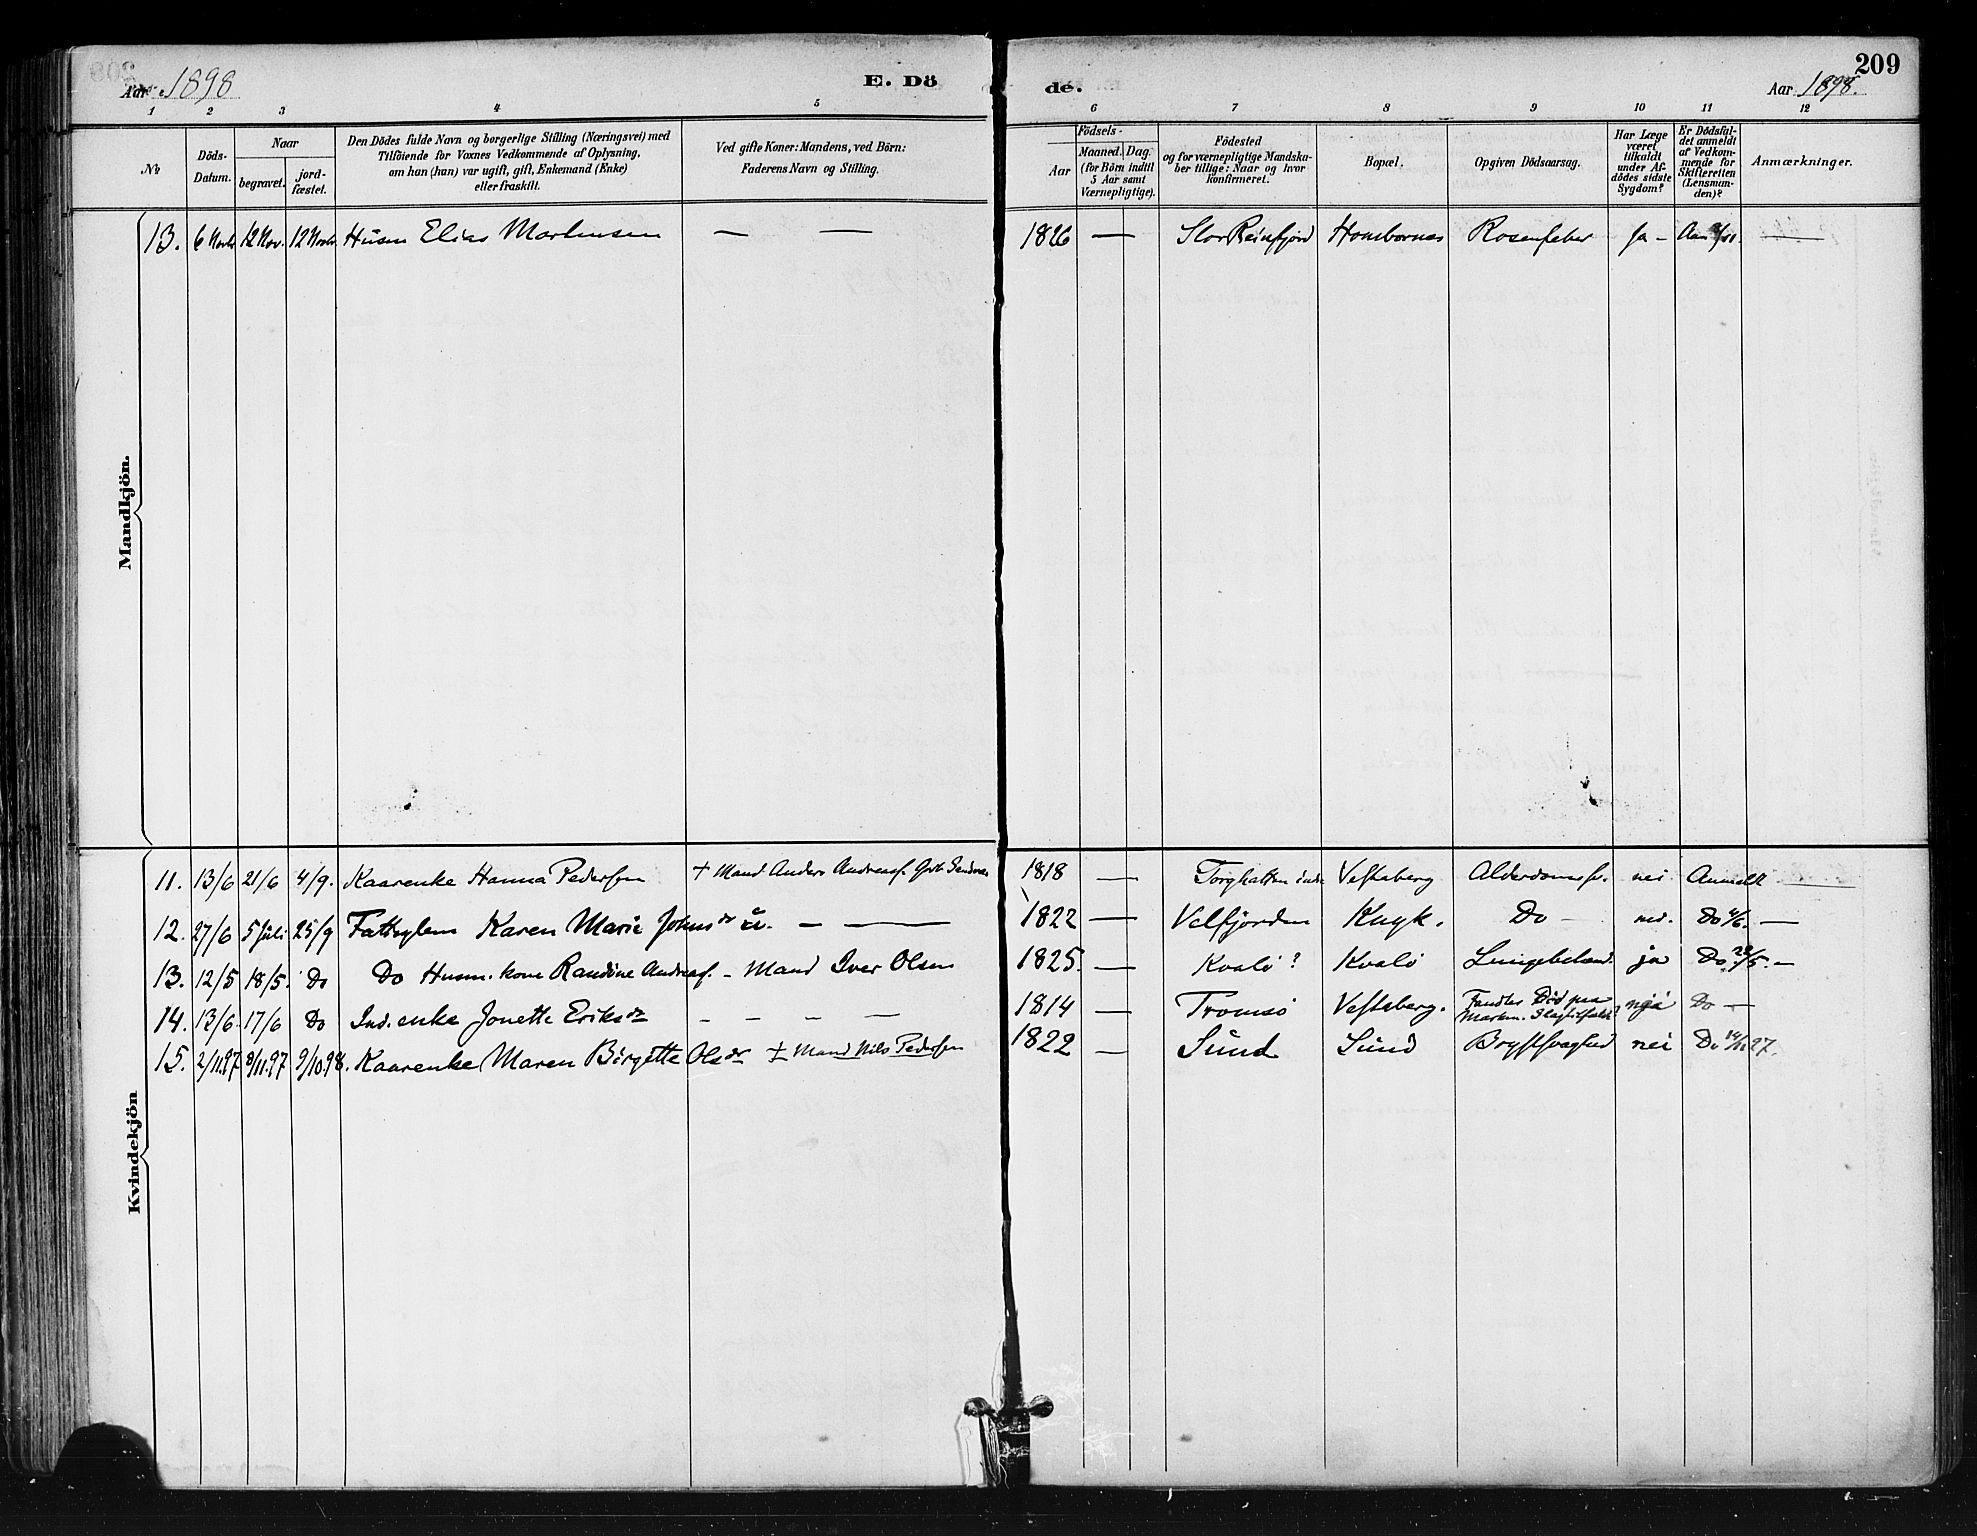 209
Aar 1898
E. Döde.
Aar 1898.
1 2 3 4 5 6 7 8 9 10 11 12
Nr
Döds-Datum.
Naar
begravet.
jord-fæstet.
Den Dödes fulde Navn og borgerlige Stilling (Næringsvei) med
Tilföiende for Voxnes Vedkommende af Oplysning,
om han (hun) var ugift, gift, Enkemand (Enke)
eller fraskilt.
Ved gifte Koner: Mandens, ved Börn:
Faderens Navn og Stilling.
Födsels-
Aar
Maaned. Dag.
(for Börn indtil
5 Aar samt
Værnepligtige).
Födested
og for værnepligtige Mandska-
ber tillige: Naar og hvor
konfirmeret.
Bopæl.
Opgiven Dödsaarsag.
Har Læge
været
tilkaldt
under Af-
dödes sidste
Sygdom?
Er Dödsfal-
det anmeldt
af Vedkom-
mende for
Skifteretten
(Lensman-
den)?
Anmærkninger.
Mandkjön.
13. 6 Novb 12 Nov. 12 Novb Husm Elias Mortensen — — 1826 — Stor Reinfjord Hombornes Rosenfeber Ja —
Kvindekjön
11. 13/6 21/6 4/9. Kaarenke Hanna Pedersen + Mand Anders Andreass. 1818 — Torghatten Vesteberg Alderdomssv. nei Anmeldt —
12. 27/6 5 Juli 25/9 Karen Marie Johnsdr u. — — 1822 — Velfjorden Kuyk. Do — nei. Do 4/6. —
13. 12/5 18/5. Do Do Husm. kone Randine Andreas. - Mand Iver Olsen 1825. — Kvalö? Kvalö ja Do 23/5. —
14. 13/6. 17/6 Do Ind. enke Jonette Eriksdr - - - - 1814 — Tromsö Vesteberg. Fandtes Död paa Do —
15. 2/11.97 8/11.97 9/10.98. Kaarenke Maren Birgitte Olsdr + Mand Nils Pedersen 1822 — Sund Sund Brystsvaghed nei